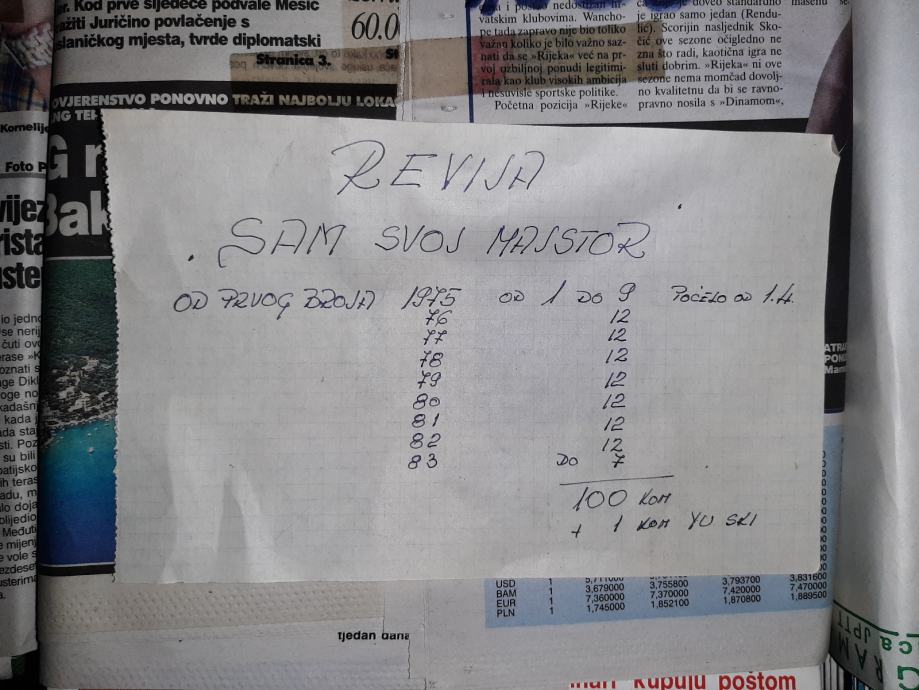 er. Kod prve sljedeće podvale Mesić
ažiti Juričino povlačenje s
slaničkog mjesta, tvrde diplomatski
Stranica 3.
60.0
vatskim klubovima. Wancho-
pe tada zapravo nije bio toliko
važan koliko je bilo važno saz-
nati da se »Rijeka« već na pr-
voj ozbiljnoj ponudi legitimi-
rala kao klub visokih ambicija
i nesuvisle sportske politike.
Početna pozicija »Rijeke«
je igrao samo jedan (Rendu-
lić). Scorijin nasljednik Sko-
čić ove sezone očigledno ne
zna što radi, kaotična igra ne
sluti dobrim. »Rijeka« ni ove
sezone nema momčad dovolj-
no kvalitetnu da bi se ravno-
pravno nosila s »Dinamom«,
OVJERENSTVO PONOVNO TRAŽI NAJBOLJU LOKA
Kornelij
Foto P
REVIJA
SAM SVOJ MAJSTOR
OD PRVOG BROJA 1975 OD 1 DO 9 POČELO OD 1.4.
76 12
77 12
78 12
79 12
80 12
81 12
82 12
83 DO 7
100 KOM
+ 1 KOM YU SKI
USD 1
BAM 1 3,679000 3,755800 3,793700 3,831600
EUR 1 7,360000 7,370000 7,420000 7,470000
PLN 1 1,745000 1,852100 1,870800 1,889500
tjedan dana
kupuju poštom